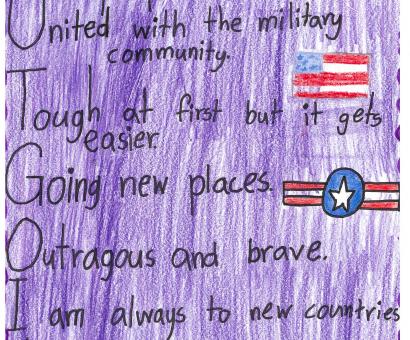 United with the military
community.
Tough at first but it gets
easier.
Going new places.
Outragous and brave.
I am always to new countries